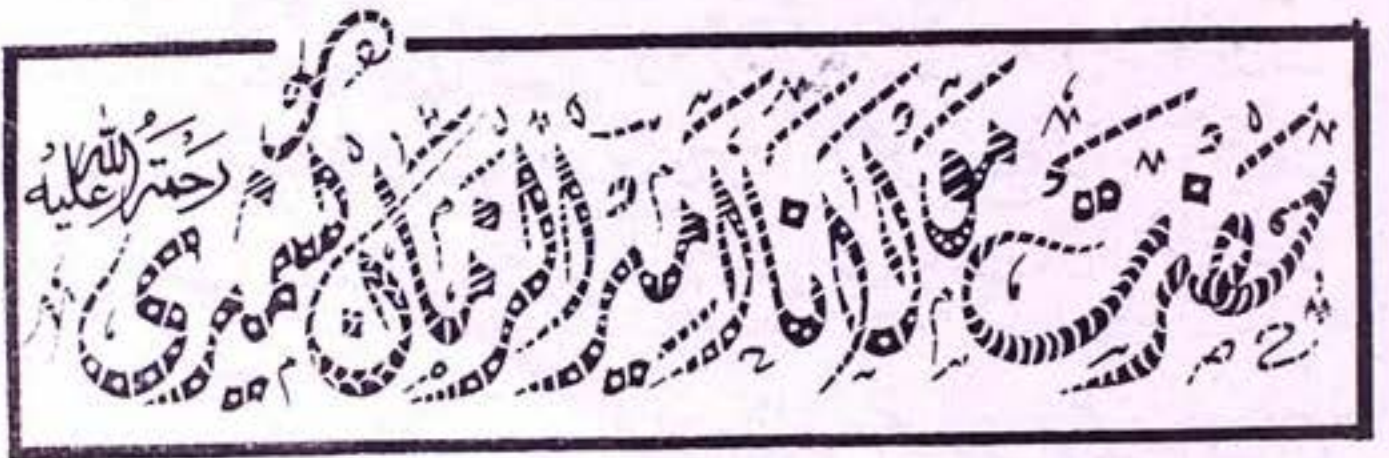 حضرت مولانا امیر الزمان کشمیری رحمۃ اللہ علیہ